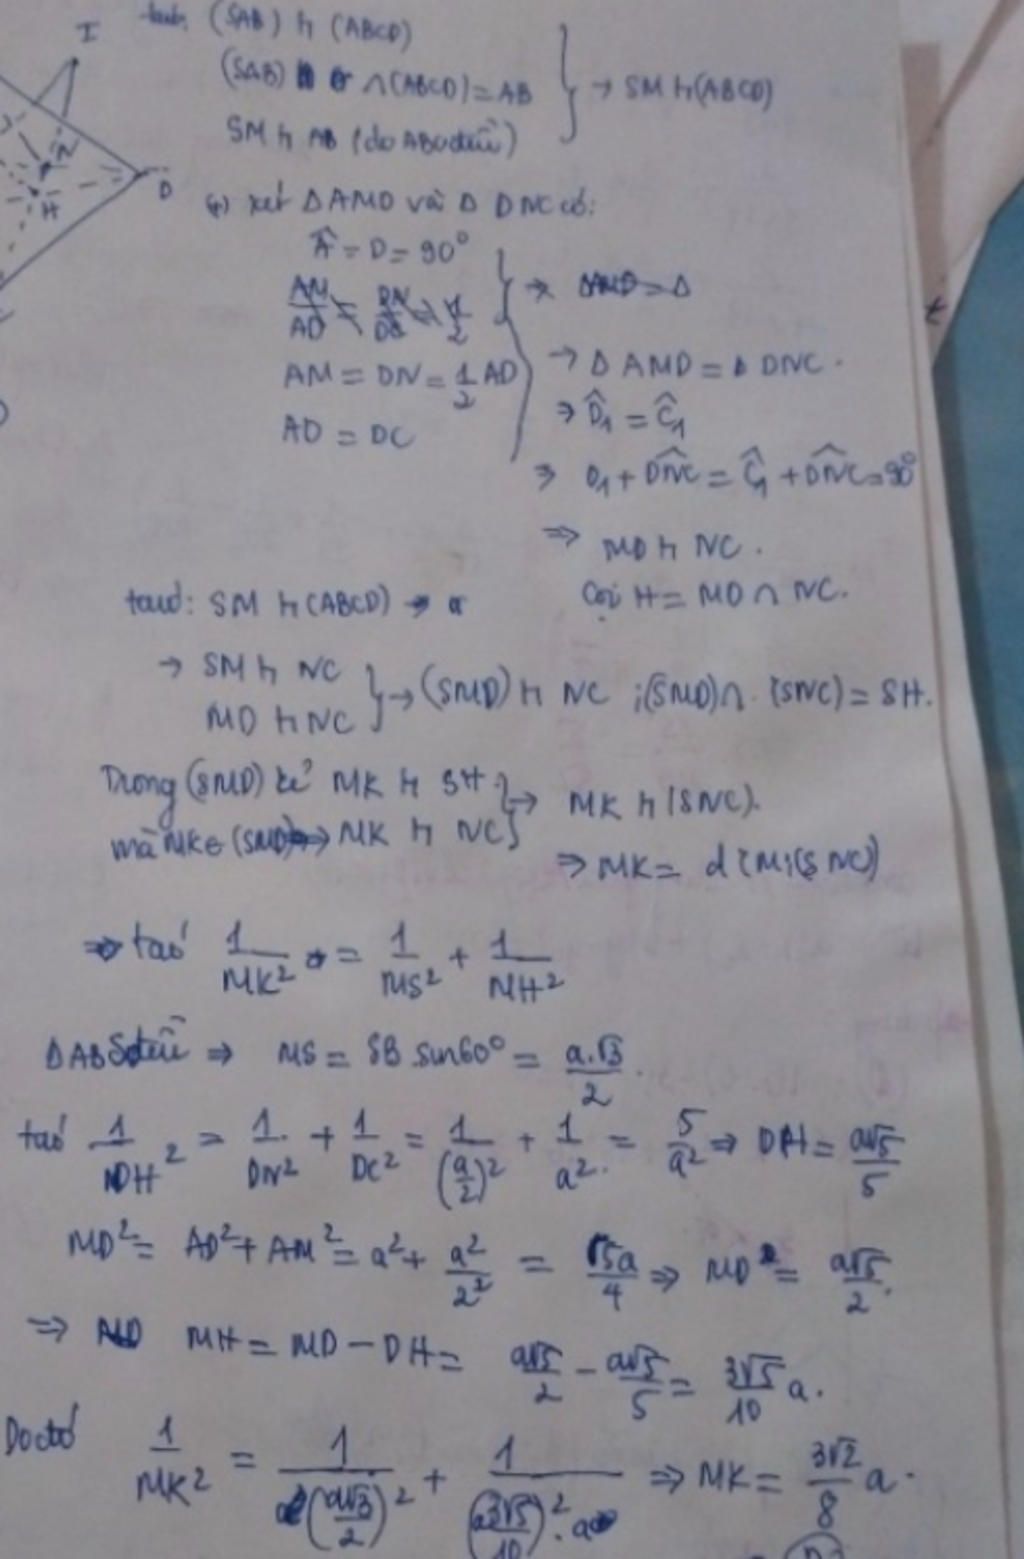 I
(SAB) ⊥ (ABCD)
(SAB) ∩ (ABCD) = AB } → SM ⊥ (ABCD)
SM ⊥ AB (do ABS đều)
D
H
xét Δ AMD và Δ DNC có:
Â = D = 90°
AM/AD = DN/DC = 1/2 → ΔAMD = Δ
AM = DN = 1/2 AD → Δ AMD = Δ DNC.
AD = DC ⇒ D̂₁ = Ĉ₁
⇒ D₁ + DNC = Ĉ₁ + DNC = 90°
⇒ MD ⊥ NC.
Gọi H = MD ∩ NC.
ta có: SM ⊥ (ABCD) →
→ SM ⊥ NC
MD ⊥ NC } → (SMD) ⊥ NC ; (SMD) ∩ (SNC) = SH.
Trong (SMD) kẻ MK ⊥ SH } → MK ⊥ (SNC).
mà MK ∈ (SMD) → MK ⊥ NC
⇒ MK = d (M; (SNC))
⇒ ta có 1/MK² = 1/MS² + 1/MH²
Δ ABS đều ⇒ MS = SB.sin60° = a.√3/2.
ta có 1/DH² = 1/DN² + 1/DC² = 1/(a/2)² + 1/a². = 5/a² ⇒ DH = a√5/5
MD² = AD² + AM² = a² + a²/2² = √5a/4 ⇒ MD = a√5/2.
⇒ MH = MD - DH = a√5/2 - a√5/5 = 3√5/10 a.
Do đó 1/MK² = 1/(a√3/2)² + 1/(3√5/10)².a ⇒ MK = 3√2/8 a.